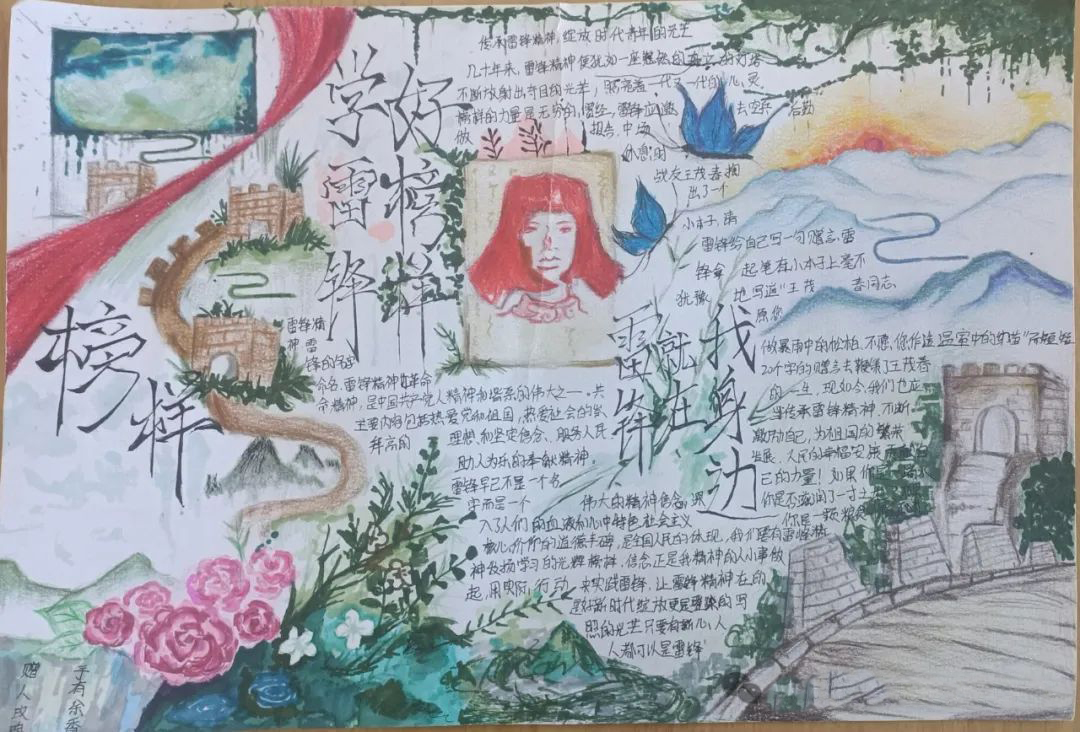 学好
雷榜
锋样
榜样
传承雷锋精神,绽放时代青年的光芒
几十年来,雷锋精神便犹如一座
不断放射出夺目的光芒,照亮着一代又一代的心灵
榜样的力量是无穷的,曾经,雷锋应邀去空兵后勤
做报告,中场
休息时
战友王茂春掏
出了一个
小本子,请
雷锋给自己写一句赠言,雷
锋拿起笔在小本子上毫不
犹豫地写道"王茂春同志
愿您
做暴雨中的松柏,不愿你作这温室中的
20个字的赠言去鞭策了王茂春
的一生,现如今,我们也应
当传承雷锋精神,不断
激励自己,为祖国的繁荣
发展、人民的幸福安康
己的力量!如果你是
你是否滋润了一寸土
你是一颗粮
雷锋就在我身边
雷锋精
神雷
锋的名字
命名,雷锋精神
命精神,是中国共产党人精神和谱系的伟大之一。共
主要内容包括热爱党和祖国,热爱社会的崇
拜高的理想和坚定信念、服务人民
助人为乐的奉献精神,
雷锋早已不是一个名
字而是一个伟大的精神信念,深
入了人们的血液和心中特色社会主义
核心价值的道德丰碑,是全国人民的体现,我们要有雷锋精
神发扬学习的光辉榜样,信念正是我精神的从小事做
起,用实际行动,去实践雷锋,让雷锋精神在的
新时代绽放更
照的光芒只要有新心,人
人都可以是雷锋
赠人玫瑰
手有余香